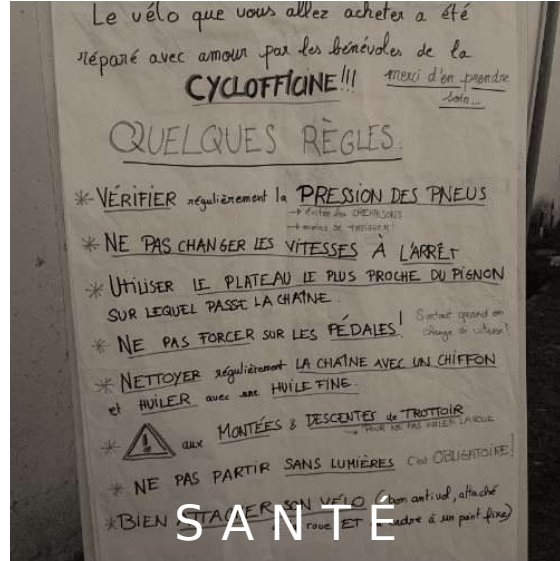 Le vélo que vous allez acheter a été
réparé avec amour par les bénévoles de la
CYCLOFFICINE!!! merci d'en prendre
soin...
QUELQUES RÈGLES.
* VÉRIFIER régulièrement la PRESSION DES PNEUS
→ éviter des CREVAISONS
→ moins se FATIGUER!
* NE PAS CHANGER LES VITESSES À L'ARRÊT
* UTILISER LE PLATEAU LE PLUS PROCHE DU PIGNON
SUR LEQUEL PASSE LA CHAÎNE.
* NE PAS FORCER SUR LES PÉDALES! Surtout quand on
change de vitesse!
* NETTOYER régulièrement LA CHAÎNE AVEC UN CHIFFON
et HUILER avec une HUILE FINE.
* ! aux MONTÉES & DESCENTES de TROTTOIR
→ POUR NE PAS VOILER LA ROUE
* NE PAS PARTIR SANS LUMIÈRES C'est OBLIGATOIRE!
* BIEN ATTACHER SON VÉLO (bon antivol, attaché
roue ET à un point fixe)
SANTÉ